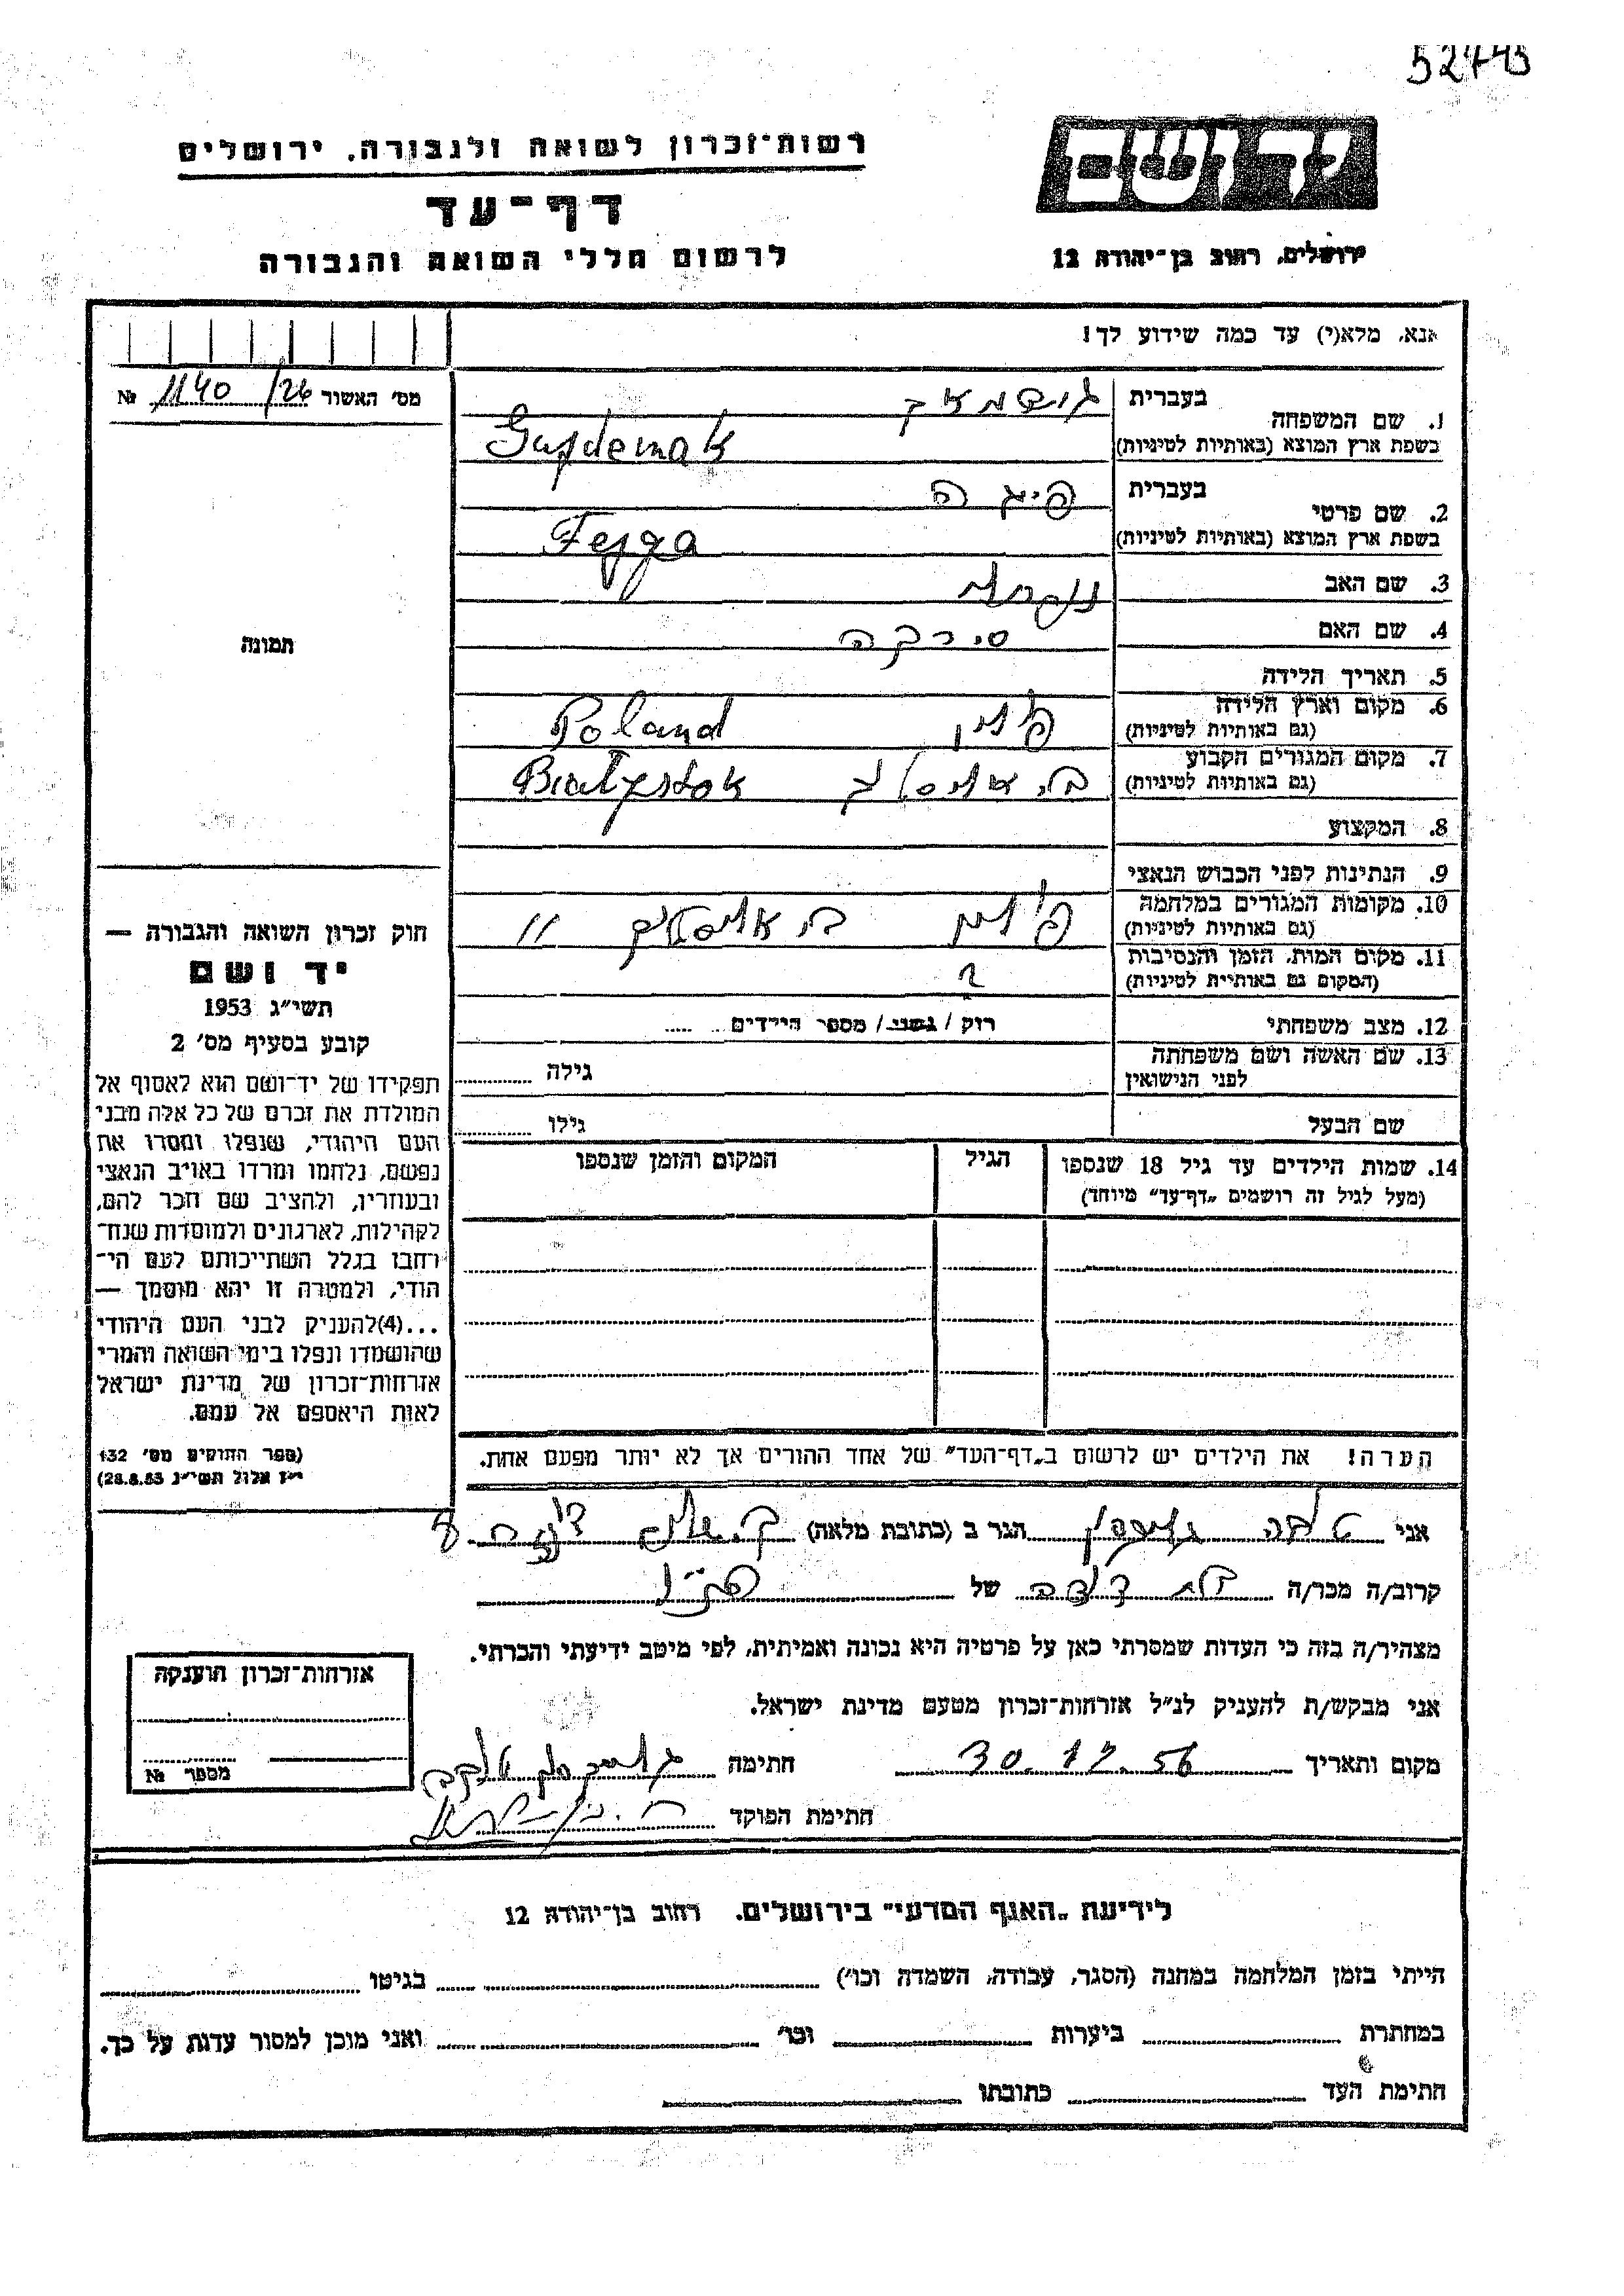 52773
רשות־זכרון לשואה ולגבורה, ירושלים
יד ושם
דף־עד
לרשום חללי השואה והגבורה
ירושלים, רחוב בן־יהודה 12
אנא, מלא(י) עד כמה שידוע לך!
מס׳ האשור 26/ 1140 №
1. שם המשפחה
בעברית
בשפת ארץ המוצא (באותיות לטיניות)
2. שם פרטי
בעברית פיגה
בשפת ארץ המוצא (באותיות לטיניות) Fejga
3. שם האב
4. שם האם סירקה
5. תאריך הלידה
6. מקום וארץ הלידה
(גם באותיות לטיניות) פולין Poland
7. מקום המגורים הקבוע
(גם באותיות לטיניות) ביאליסטוק Białystok
8. המקצוע
9. הנתינות לפני הכבוש הנאצי
10. מקומות המגורים במלחמה
(גם באותיות לטיניות) פולין ביאליסטוק "
11. מקום המות, הזמן והנסיבות
(המקום גם באותיות לטיניות) ?
12. מצב משפחתי רוק / נשוי / מספר הילדים
13. שם האשה ושם משפחתה
לפני הנישואין גילה
שם הבעל גילו
14. שמות הילדים עד גיל 18 שנספו הגיל המקום והזמן שנספו
(מעל לגיל זה רושמים „דף־עד" מיוחד)
הערה! את הילדים יש לרשום ב„דף־העד" של אחד ההורים אך לא יותר מפעם אחת.
תמונה
חוק זכרון השואה והגבורה —
יד ושם
תשי״ג 1953
קובע בסעיף מס׳ 2
תפקידו של יד־ושם הוא לאסוף אל
המולדת את זכרם של כל אלה מבני
העם היהודי, שנפלו ומסרו את
נפשם, נלחמו ומרדו באויב הנאצי
ובעוזריו, ולהציב שם וזכר להם,
לקהילות, לארגונים ולמוסדות שנח־
רחבו בגלל השתייכותם לעם הי־
הודי, ולמטרה זו יהא מוסמך —
...(4)להעניק לבני העם היהודי
שהושמדו ונפלו בימי השואה והמרי
אזרחות־זכרון של מדינת ישראל
לאות היאספם אל עמם.
(ספר החוקים מס׳ 132
י״ז אלול תשי״ג 28.8.53)
אני הגר ב (כתובת מלאה) 8
קרוב/ה מכר/ה של
מצהיר/ה בזה כי העדות שמסרתי כאן על פרטיה היא נכונה ואמיתית, לפי מיטב ידיעתי והכרתי.
אני מבקש/ת להעניק לנ״ל אזרחות־זכרון מטעם מדינת ישראל.
מקום ותאריך 30.12.56 חתימה
חתימת הפוקד
אזרחות־זכרון הוענקה
מספר №
לידיעת „האגף המדעי" בירושלים, רחוב בן־יהודה 12
הייתי בזמן המלחמה במחנה (הסגר, עבודה, השמדה וכו׳) בגיטו
במחתרת ביערות וכו׳ ואני מוכן למסור עדות על כך.
חתימת העד כתובתו